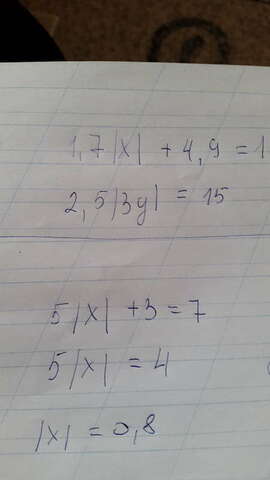 1,7|x| + 4,9 = 1
2,5|3y| = 15
5|x| + 3 = 7
5|x| = 4
|x| = 0,8